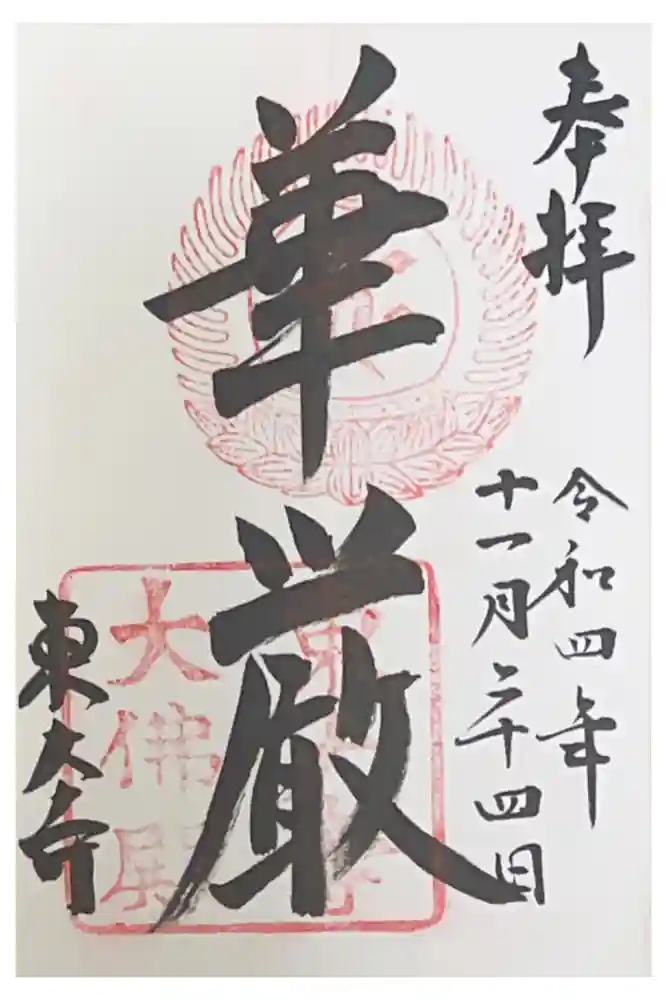 奉拝
令和四年
十一月二十四日
華厳
東大寺
東大寺
大佛殿